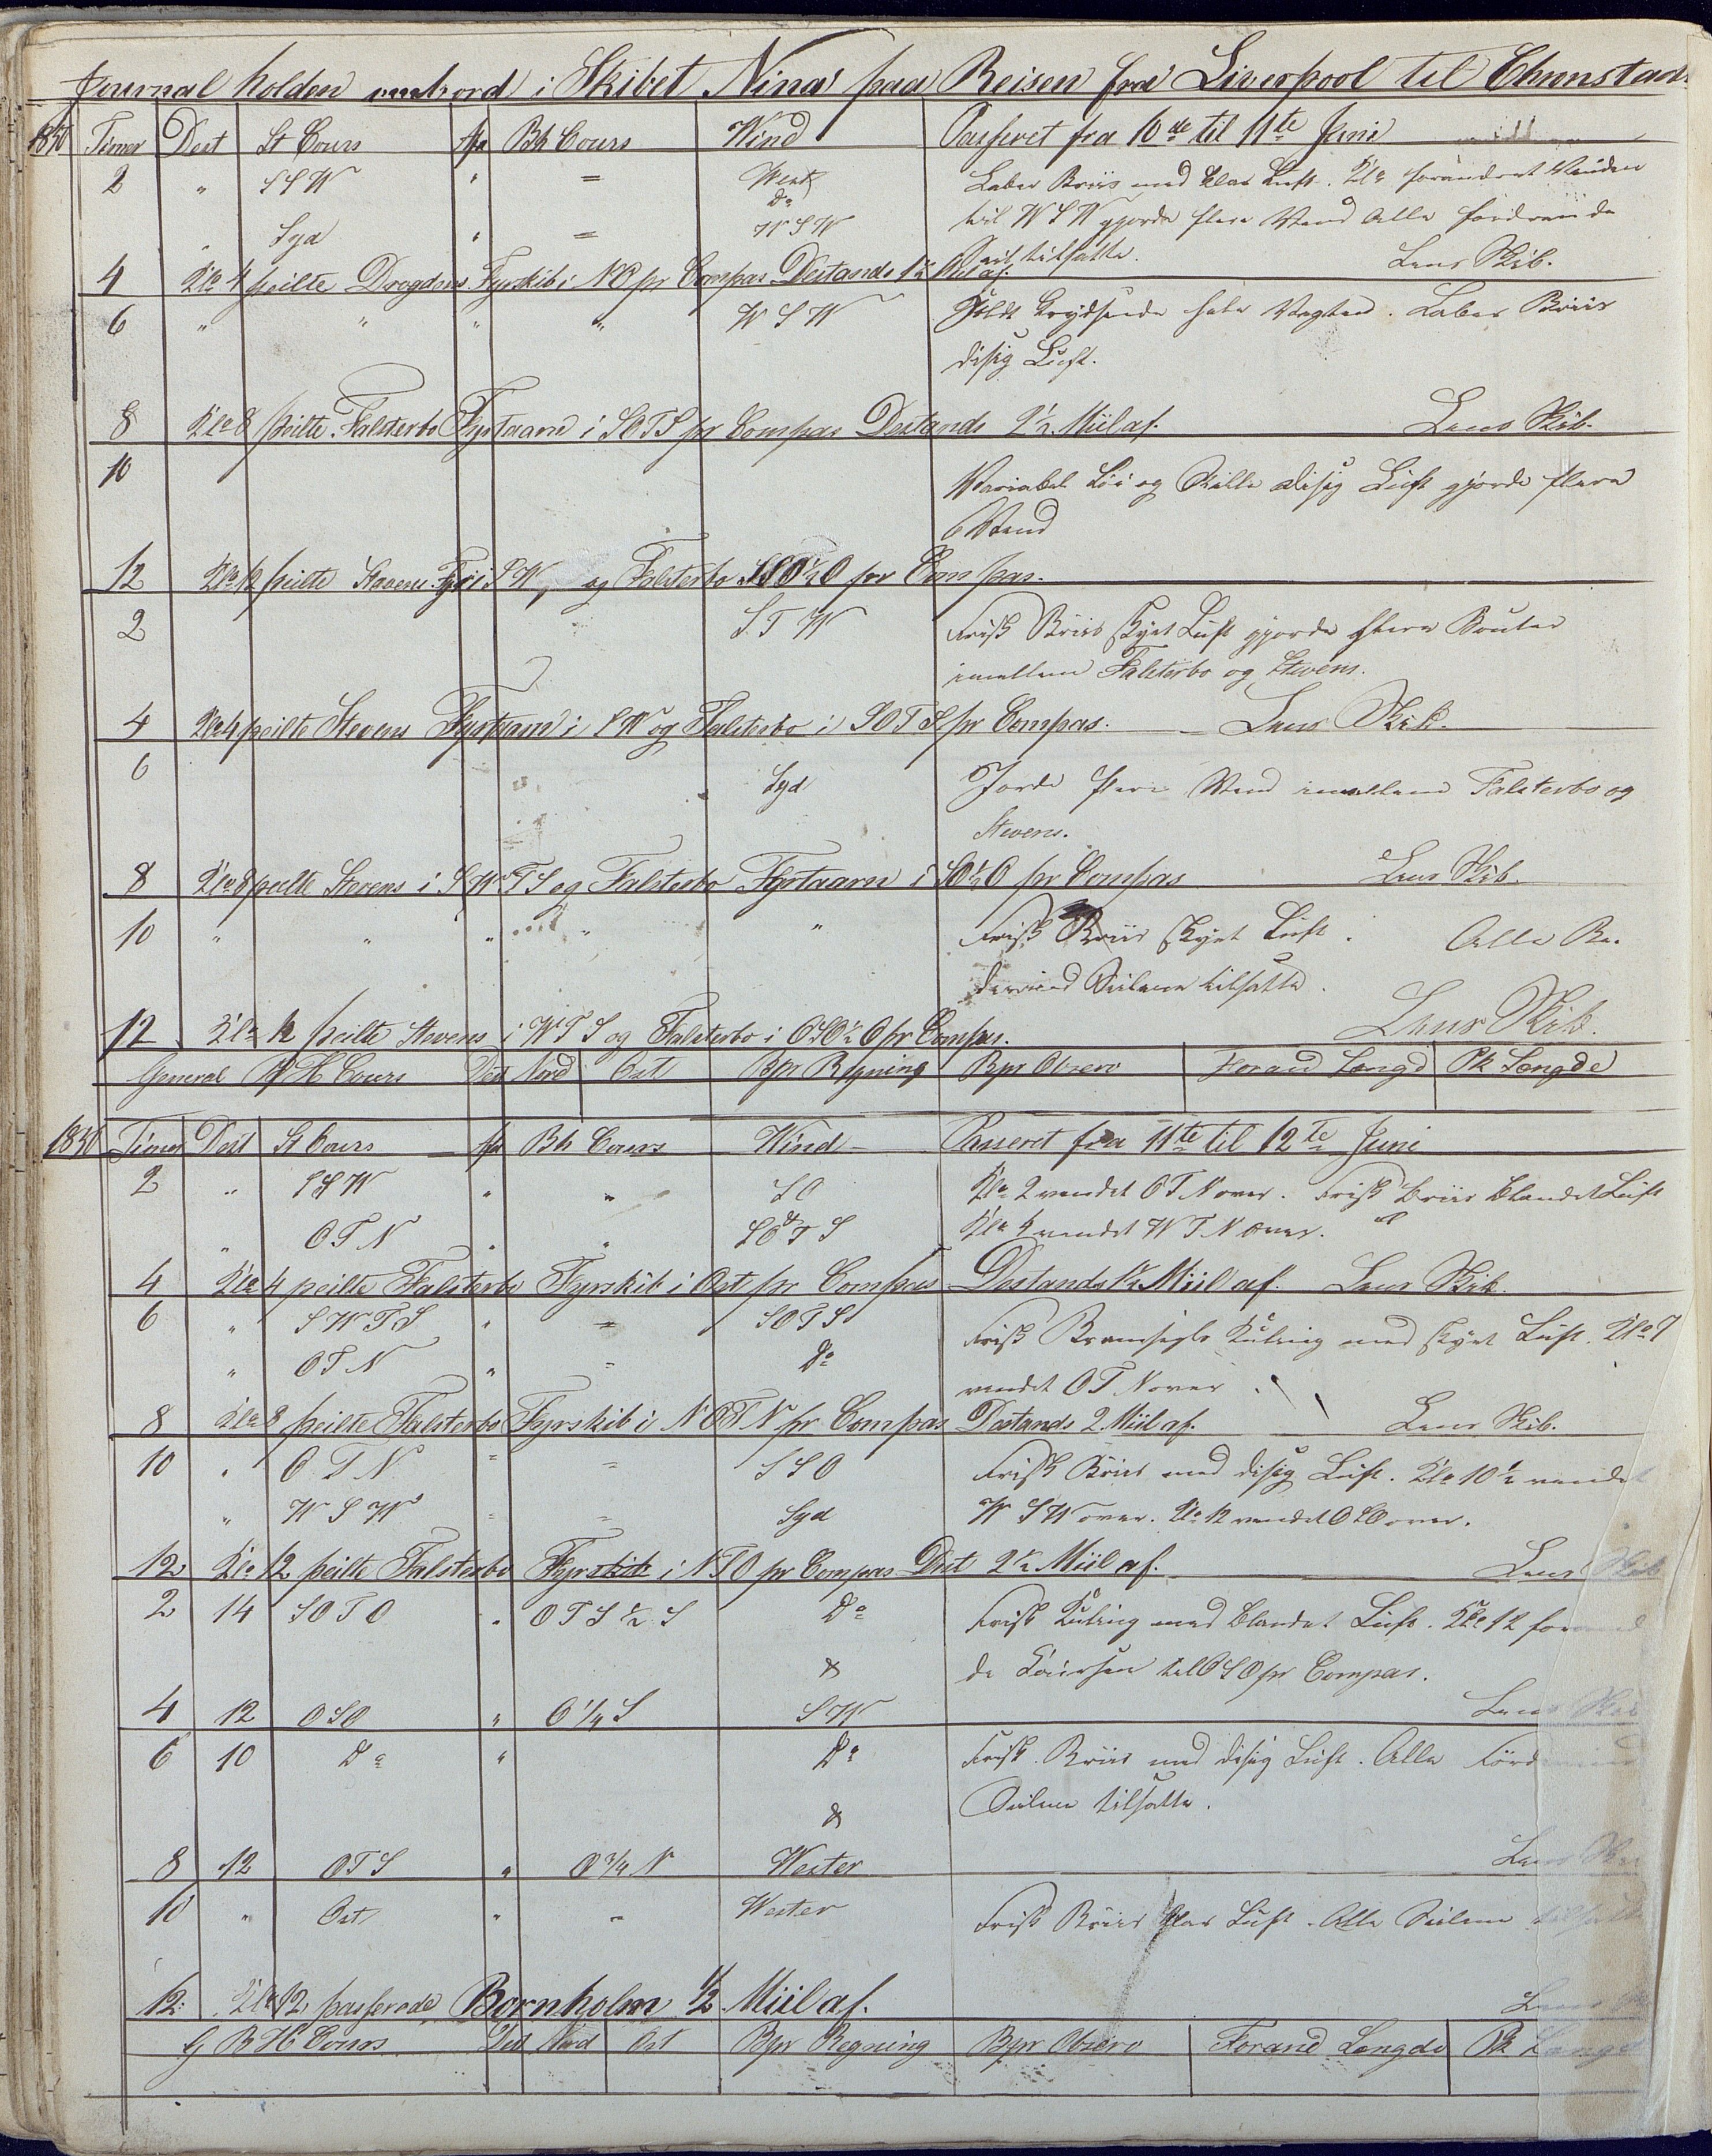 Journal holden ombord i Skibet Nina paa Reisen fra Liverpool til Chronstadt
1856 Timer Dest St Cours Afd Bh Cours Wind Passeret fra 10de til 11te Juni
2 " SSW " = West Laber Briis med klar Luft. Klo forandret Vinden
Do
" Syd " = WSW til WSW gjorde flere Vend Alle forderende
Seil tilsatte. Lens Skib.
4 Klo 4 peilte Drogdens Fyrskib i NO pr Compas Destands 1½ Miil af.
6 " " " " WSW Holdt krydsende hele Vagten. Laber Briis
disig Luft.
8 Klo 8 peilte Falsterbo Fyrtaarn i SOTS pr Compas Destands 2½ Miil af. Lens Skib.
10 Variabel Løi og Stille disig Luft gjorde flere
Vend
12 Klo 12 peilte Stevens Fyr i SW, og Falsterbo SSO½O pr Compas.
2 STW Frisk Briis skyet Luft gjorde flere Bouter
imellem Falsterbo og Stevens.
4 Klo 4 peilte Stevens Fyrtaarn i SW og Falsterbo i SOTS pr Compas. Lens Skib.
6 " Syd Jorde flere Vend imellem Falsterbo og
Stevens.
8 Klo 8 peilte Stevens i SWTS og Falsterbo Fyrtaarn i SO½O pr Compas Lens Skib.
10 " " " " " Frisk Briis skyet Luft. Alle
Seilene tilsatte.
12 Klo 12 peilte Stevens i WTS og Falsterbo i OSO½O pr Compas. Lens Skib.
General BH Cours Dest Nord Ost Bpr Regning Bpr Observ Forand Længd Pk Længde
1856 Timer Dest St Cours Afd Bh Cours Wind Passeret fra 11te til 12te Juni
2 " SSW " " SO Klo 2 vendet OTN over. Frisk Briis blandet Luft
" OTN " " SO & TS Klo 4 vendet WTN over.
4 Klo 4 peilte Falsterbo Fyrskib i Ost pr Compas Destands ½ Miil af. Lens Skib.
6 " SWTS " = SOTS Frisk Bramseils Kuling med skyet Luft. Klo 7
" OTN " = Do vendet OTN over.
8 Klo 8 peilte Falsterbo Fyrskib i NOTN pr Compas Destands 2 Miil af. Lens Skib.
10 " OTN = = SSO Frisk Briis med disig Luft. Klo 10½ vendet
" WSW = = Syd WSW over. Klo 12 vendet OSO over.
12 Klo 12 peilte Falsterbo Fyrskib i NTO pr Compas Dest 2½ Miil af. Lens Skib
2 14 SOTO " OTS½S Do Frisk Kuling med blandet Luft. Klo 12
& de Coursen til OSO pr Compas.
4 12 OSO " O¼S SW Lens Skib
6 10 Do " Do Frisk Briis med disig Luft. Alle
& Seilene tilsatte.
8 12 OTS " O¾N Wester Lens Skib
10 " Ost " = Wester Frisk Briis klar Luft. Alle Seilene tilsatte
12 Klo 12 passerede Bornholm ½ Miil af. Lens
G BH Cours Dest Nord Ost Bpr Regning Bpr Observ Forand Længde Pk Længd